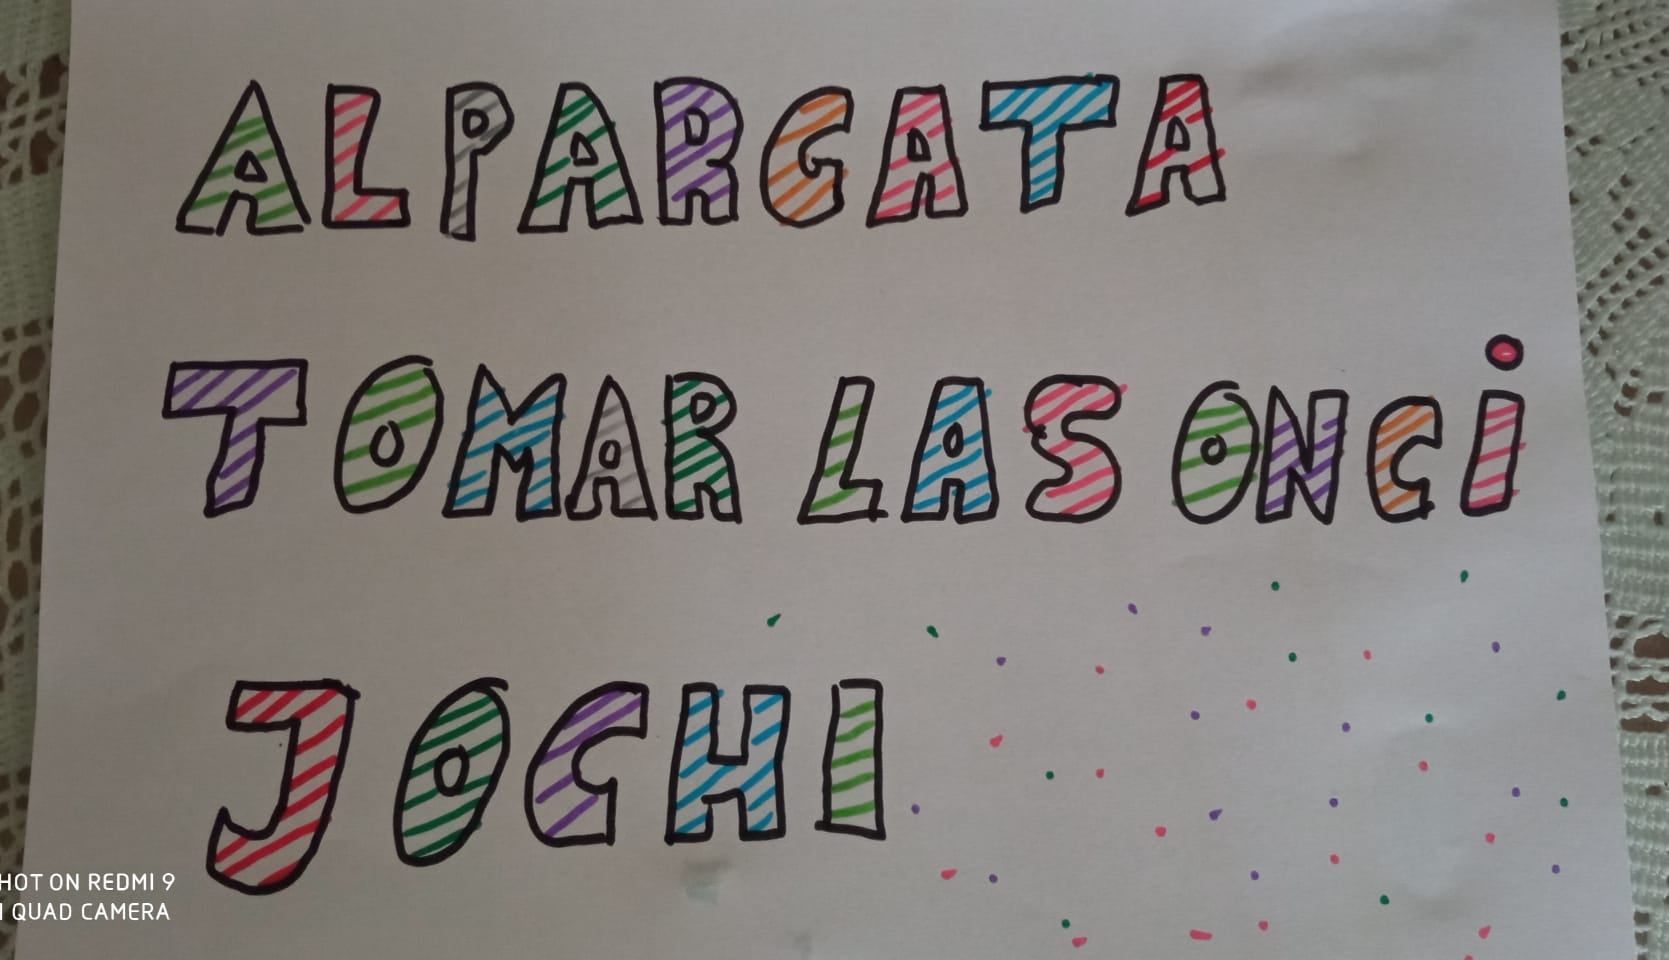 ALPARGATA
TOMAR LAS ONCi
JOCHI
HOT ON REDMI 9
I QUAD CAMERA